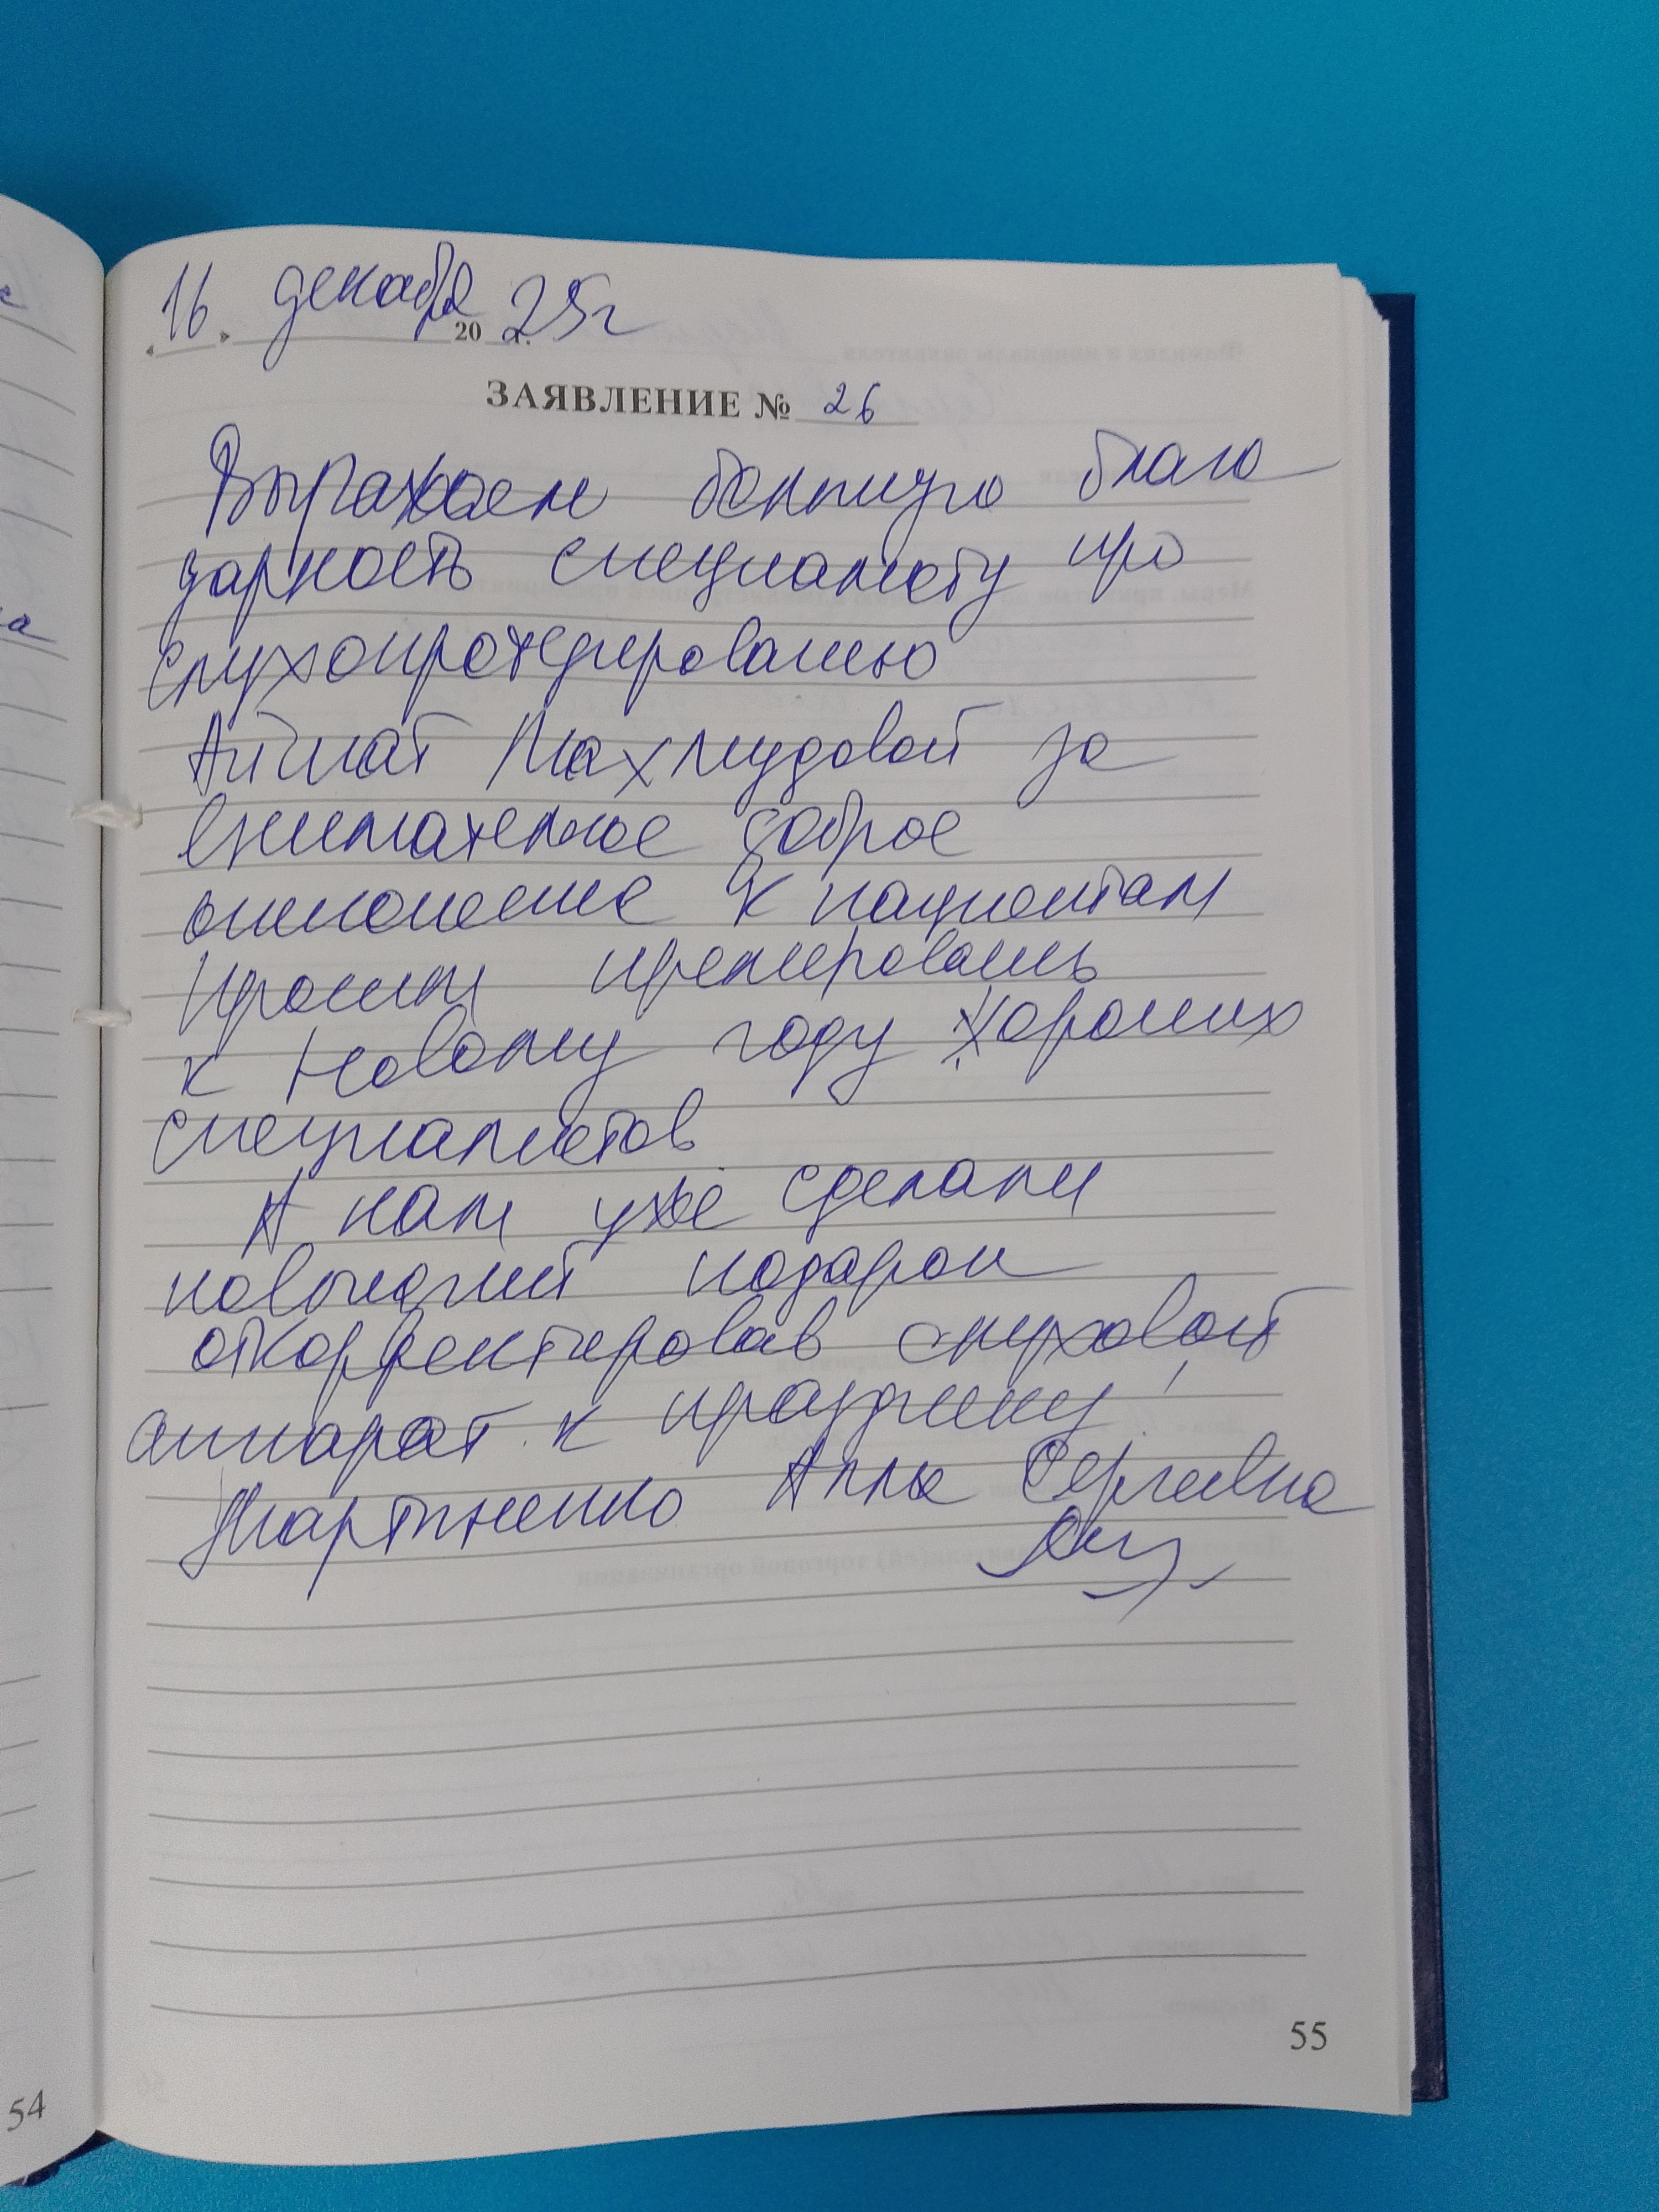 16 декабря 2025г
ЗАЯВЛЕНИЕ № 26
Выражаем большую благо
дарность специалисту про
слухопротезированию
Айшат Махмудовой за
внимательное доброе
отношение к пациентам
Просим премировать
к Новому году хороших
специалистов
А нам уже сделали
новогодний подарок
откорректировав слуховой
аппарат к празднику!
Мартыненко Алла Сергеевна
55
54